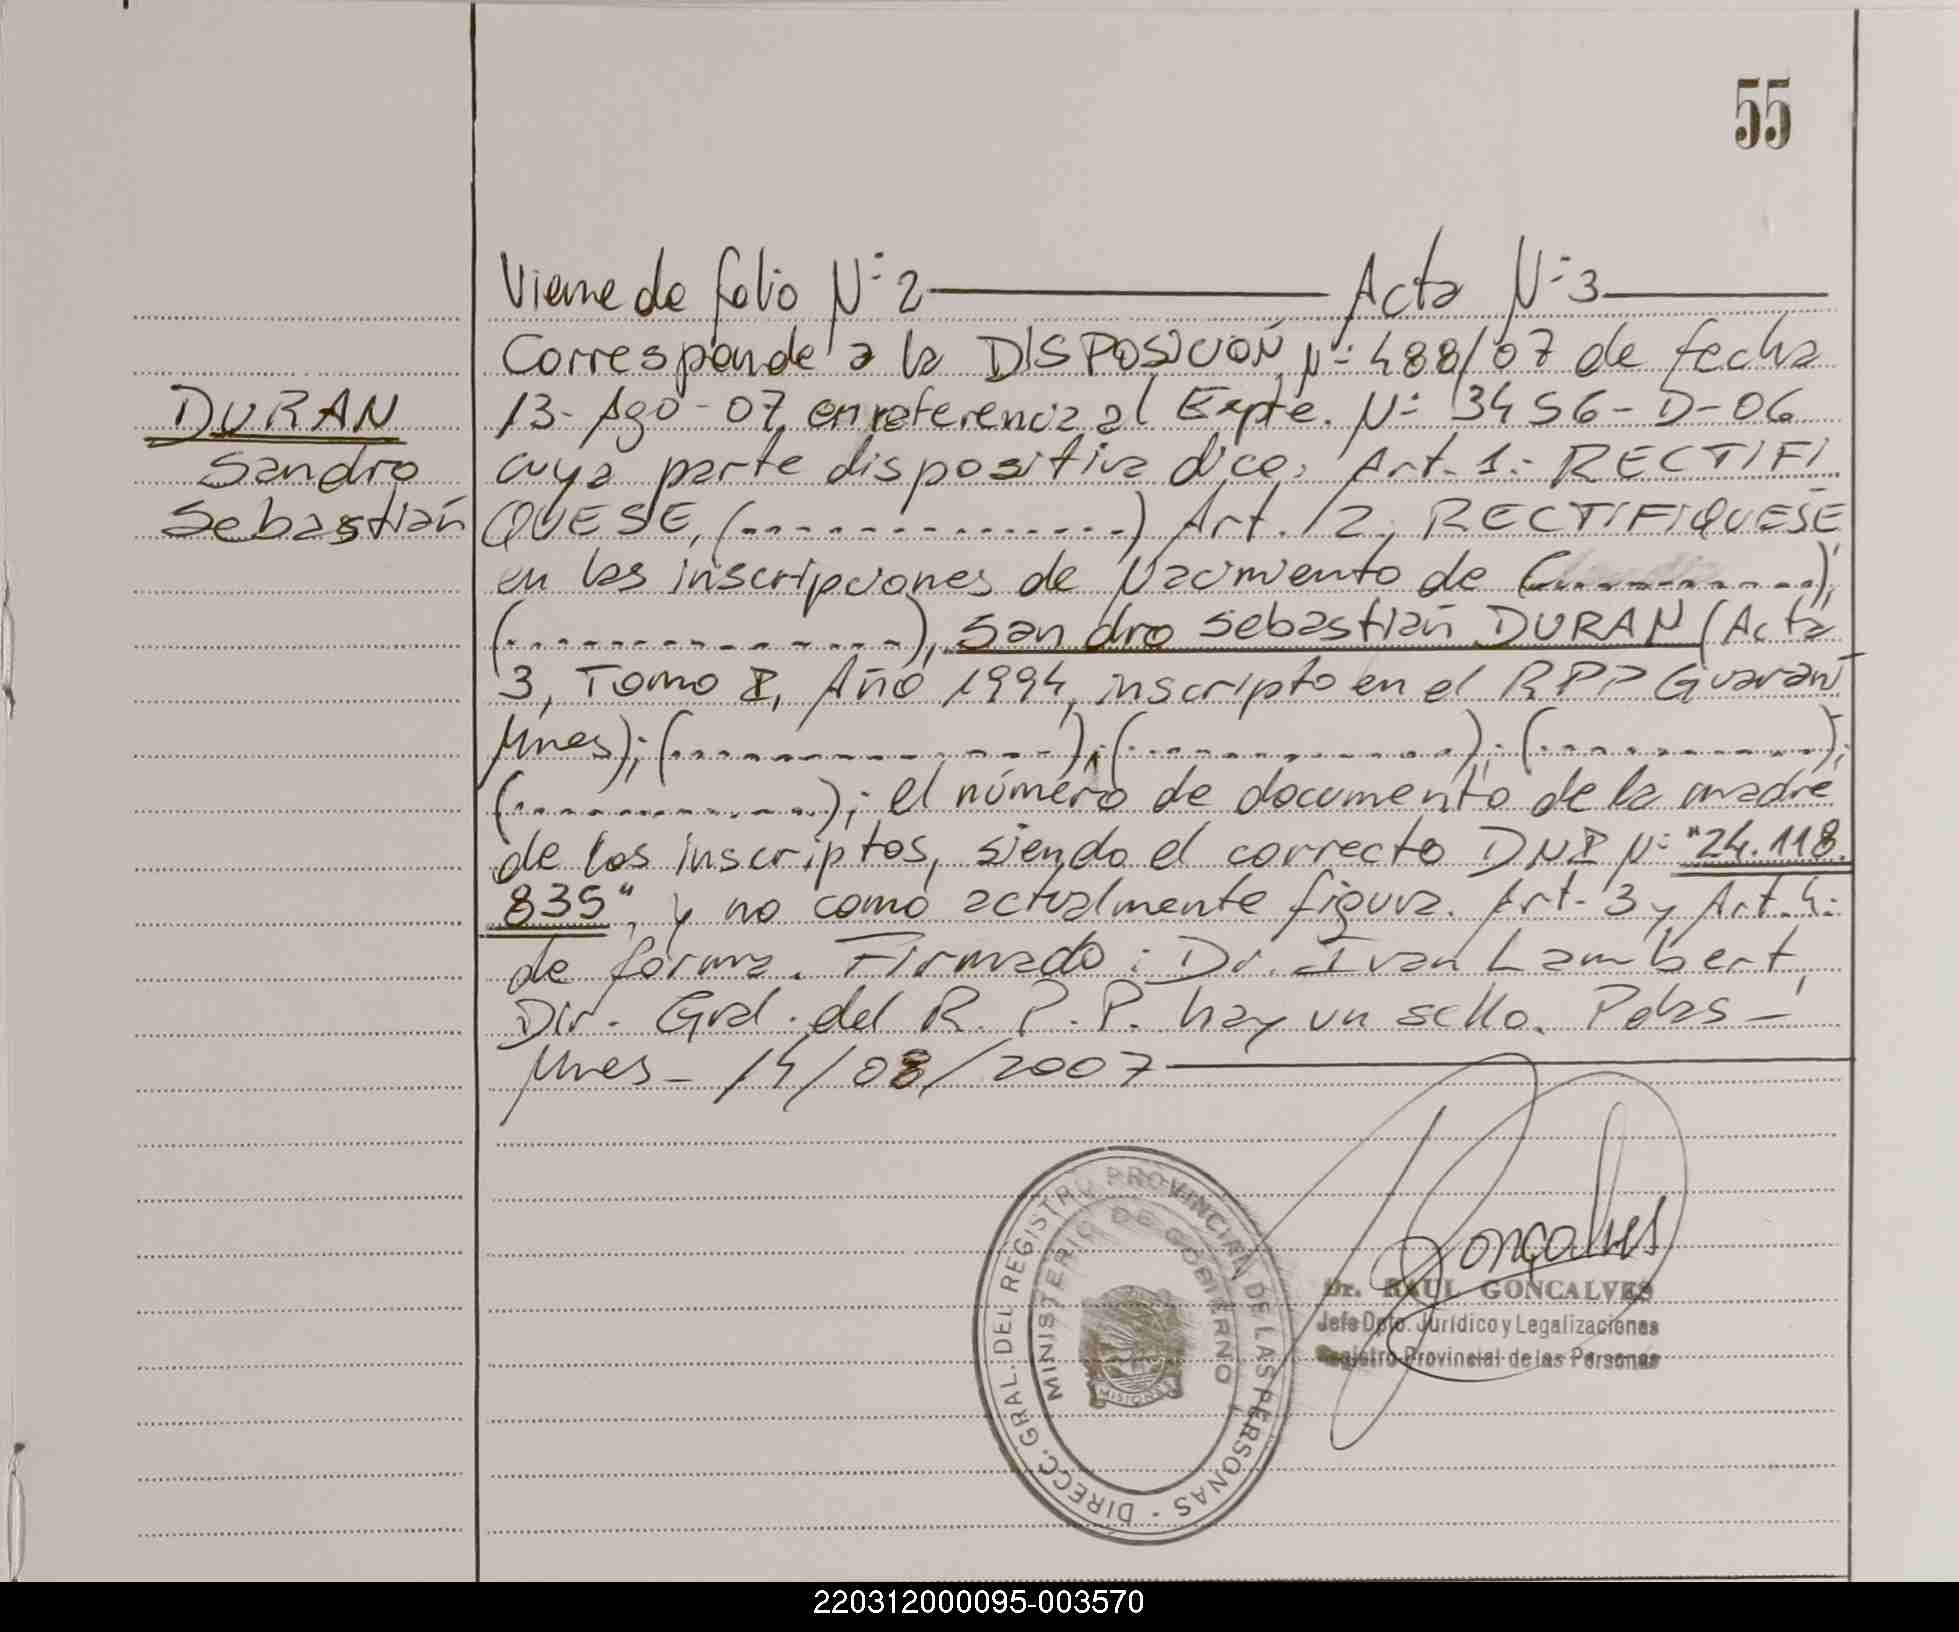 55
Viene de folio Nº 2 ——— Acta Nº 3 ———
Corresponde a la DISPOSICIÓN Nº 488/07 de fecha
DURAN
13-Ago-07, en referencia al Expte. Nº 3456-D-06
Sandro
cuya parte dispositiva dice: Art. 1:- RECTIFI
Sebastián
QUESE, (--------------) Art. 2, RECTIFIQUESE
en las inscripciones de Nacimiento de (------------);
(--------------), Sandro Sebastián DURAN (Acta
3, Tomo I, Año 1994, inscripto en el RPP Guaraní
Mnes); (--------------); (------------); (------------);
(------------); el número de documento de la madre
de los inscriptos, siendo el correcto DNI Nº "24.118.
835", y no como actualmente figura. Art. 3 y Art. 4:
de forma. Firmado: Dr. Ivan Lambert,
Dir. Gral. del R. P. P. hay un sello. Pdas -
Mnes - 14/08/2007 ———
DIRECC. GRAL. DEL REGISTRO PROVINCIAL DE LAS PERSONAS -
MINISTERIO DE GOBIERNO
MISIONES
Gonçalves
Dr. RAUL GONCALVES
Jefe Dpto. Jurídico y Legalizaciones
Registro Provincial de las Personas
220312000095-003570